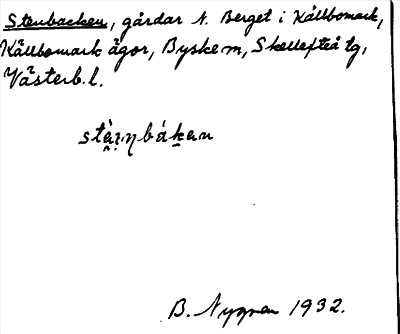 Stenbacken, gårdar N. Berget i Källbomark,
Källbomark ägor, Byske m, Skellefteå tg,
Västerb.l.
B. Nygren 1932.